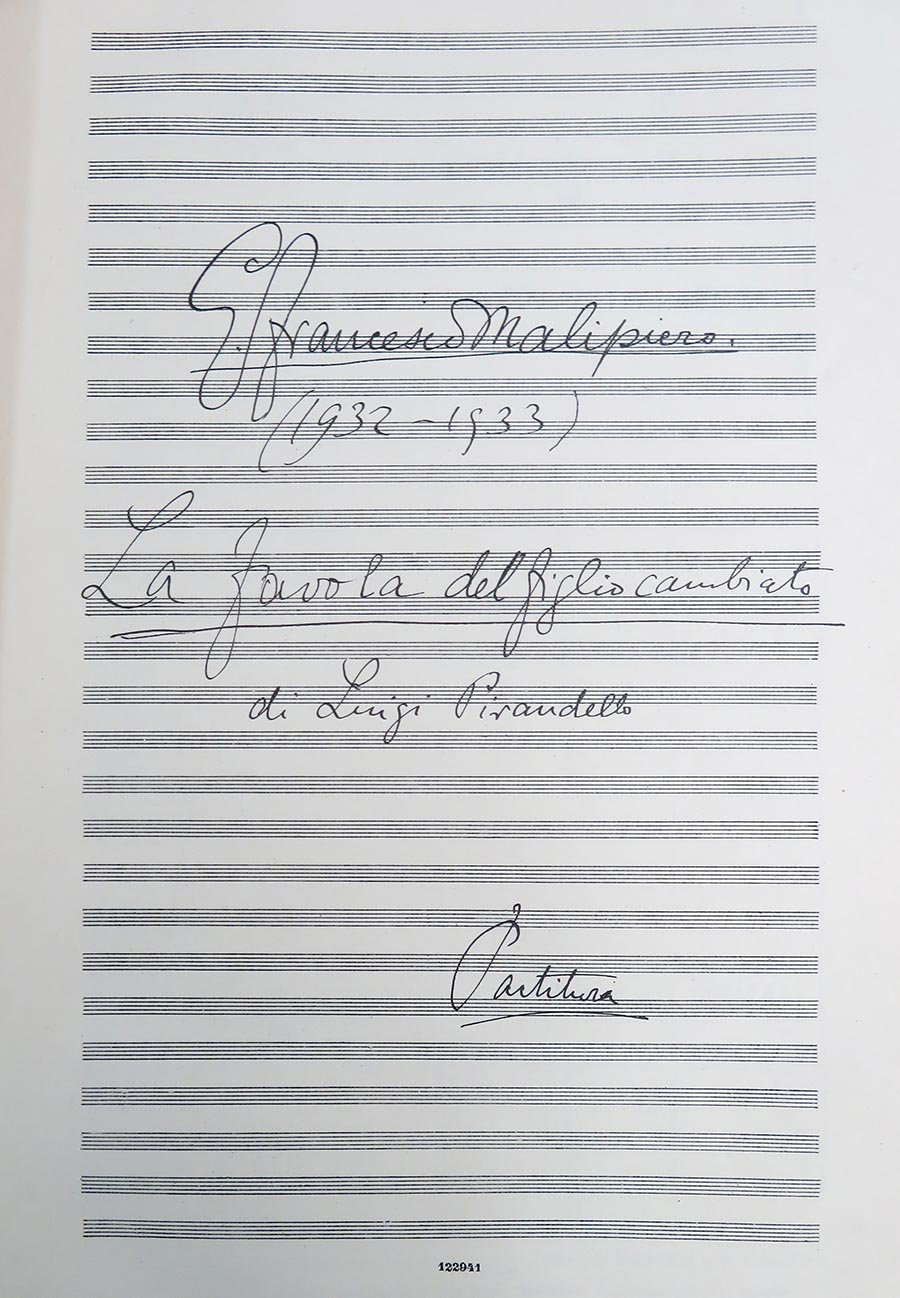 G. Francesco Malipiero.
(1932-1933)
La favola del figlio cambiato
di Luigi Pirandello
Partitura
122941